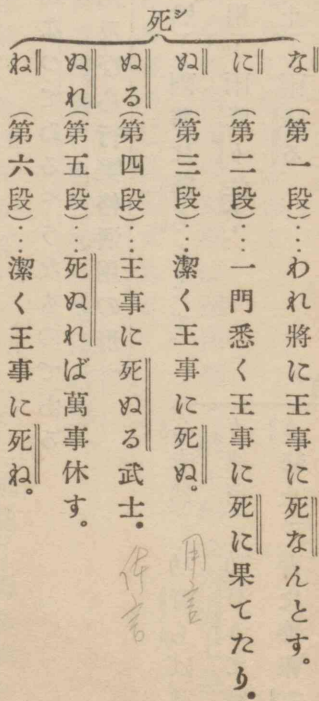 死シ
な（第一段）…われ將に王事に死なんとす。
に（第二段）…一門悉く王事に死に果てたり。
ぬ（第三段）…潔く王事に死ぬ。
用言
ぬる（第四段）…王事に死ぬる武士。
体言
ぬれ（第五段）…死ぬれば萬事休す。
ね（第六段）…潔く王事に死ね。